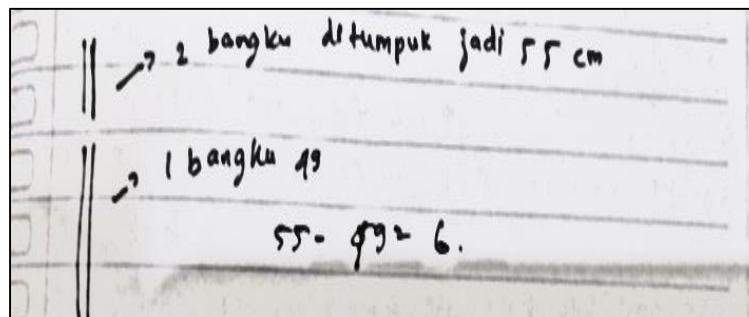 2 bangku ditumpuk jadi 55 cm
1 bangku 49
55 - 49 = 6.